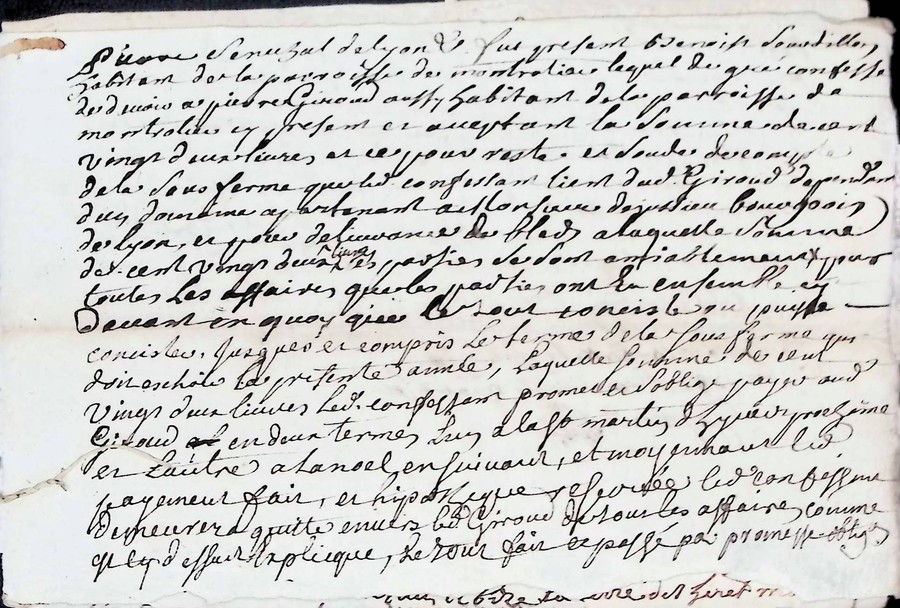 Senechal de lyon & fut present Benoist
habitant de la parroisse de montrotier lequel de gré confesse
de devoir a pierre Giroud aussy habitant de la parroisse de
montrotier cy present et aceptant la somme de cent
vingt deux livres et ce pour reste et solde de compte
de la sous ferme que led. confessant tient dud. Giroud dependant
dun domaine apartenant a Monsieur bourgeois
de lyon, et pour delivrance de bled, a laquelle somme
de cent vingt deux livres, parties se sont amiablement pour
toutes les affaires que les parties ont Eu ensemble cy
devant en quoy que le tout conciste ou puisse
conciste, jusques et compris le terme de la sous ferme qui
doit eschoir la presente année, laquelle somme de cent
vingt deux livres led. confessant promet et soblige payer aud
Giroud en deux termes Lun a la st martin dhyver prochaine
et Lautre a la noel ensuivant, et moyennant led
payement fait, et hipotheque reservée led confessant
demeurera quitte envers led Giroud de tous les affaires comme
dessus Explicque, Le tout fait et passé par promesse oblige